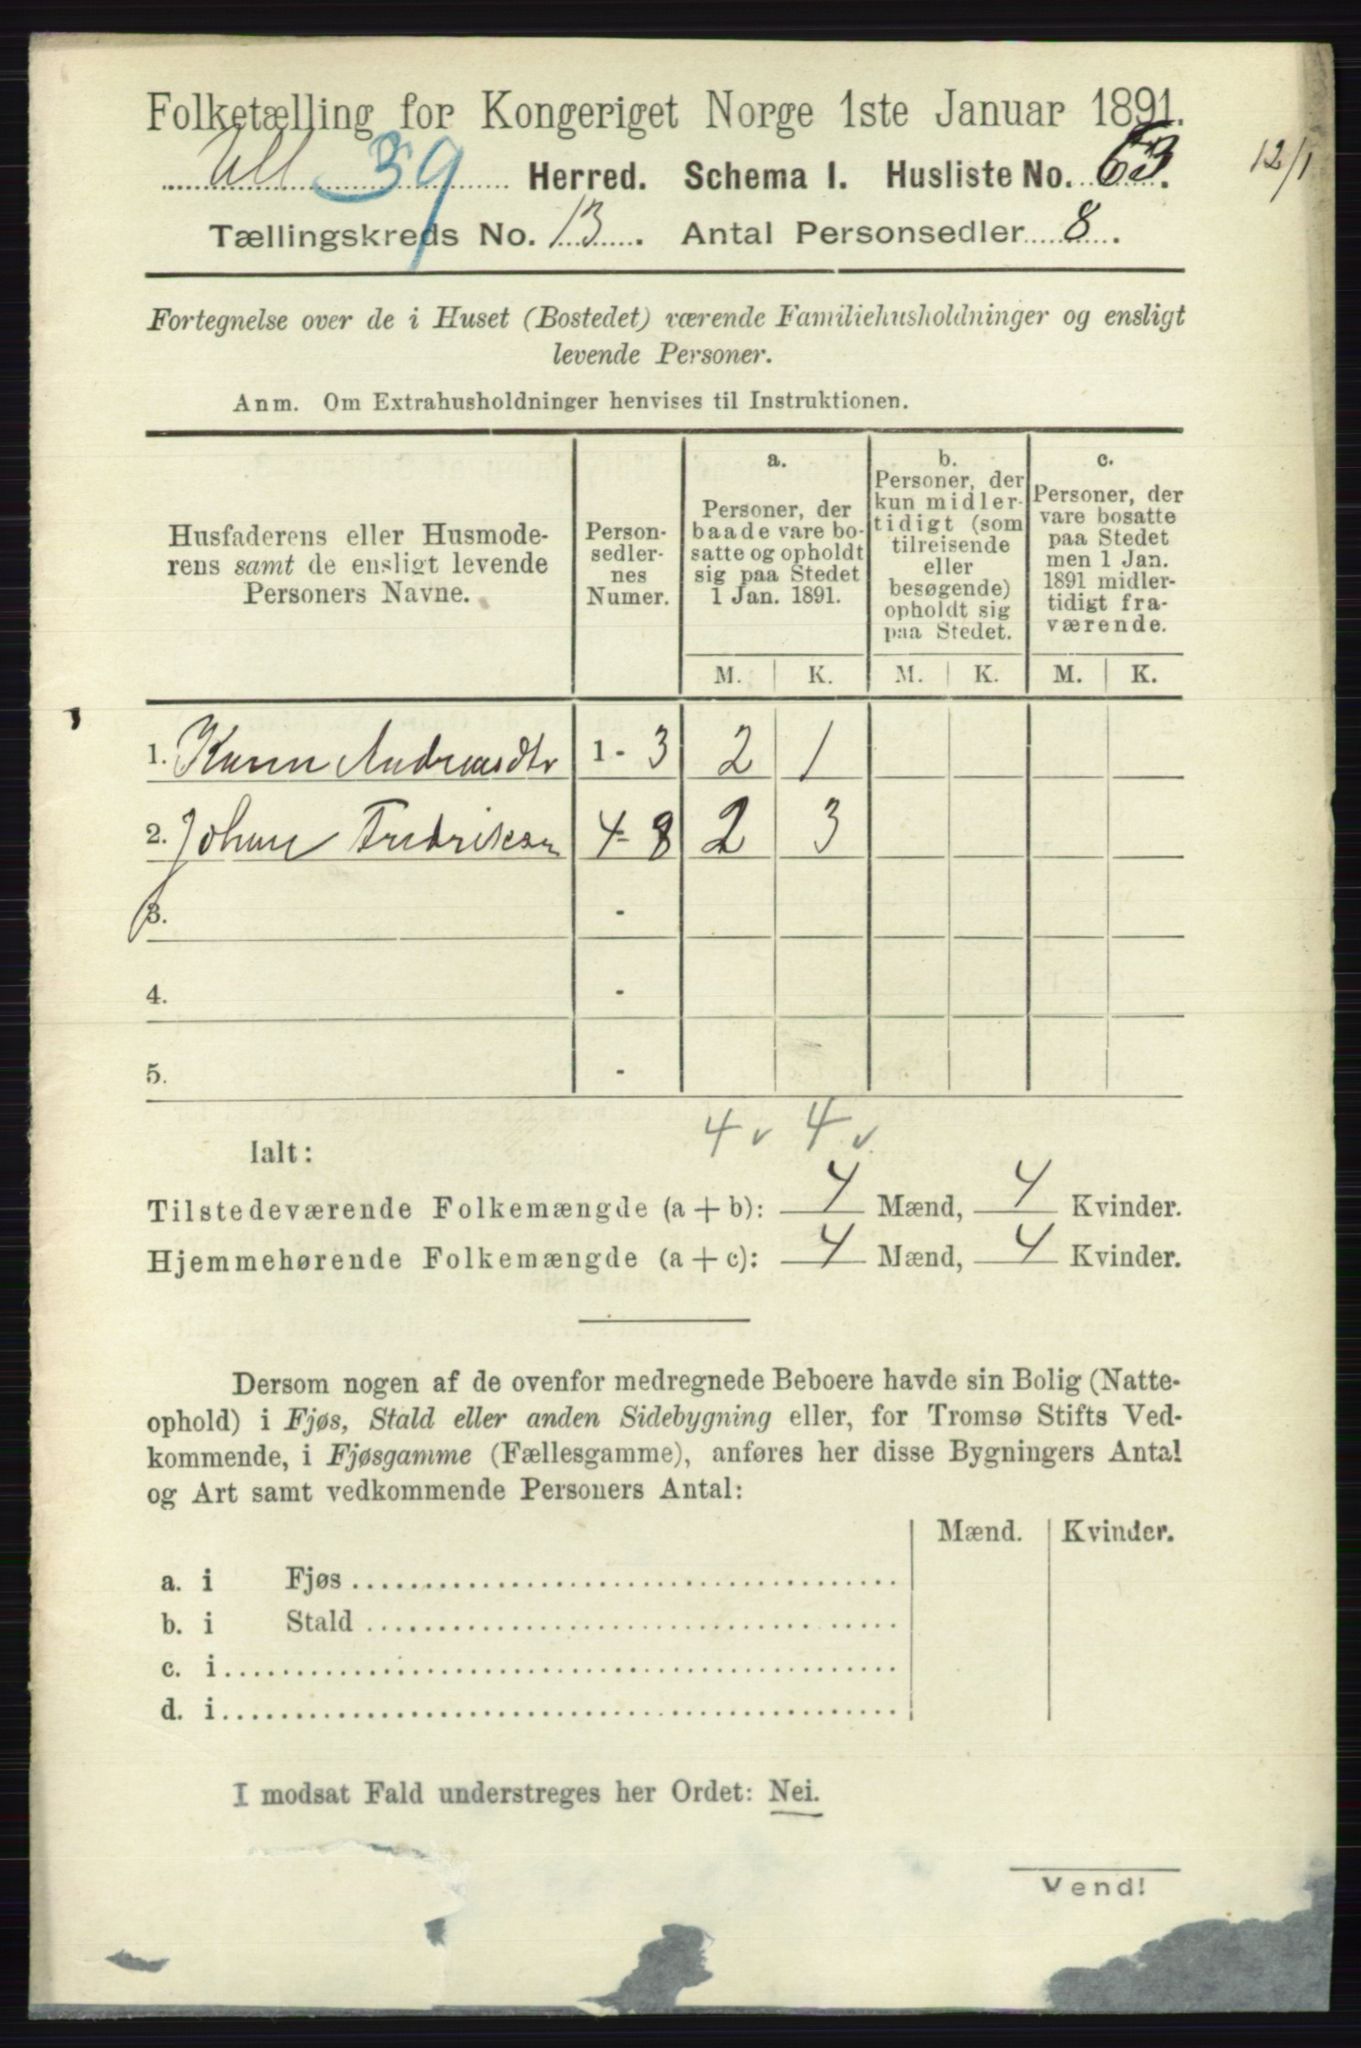 Folketælling for Kongeriget Norge 1ste Januar 1891.
Ull 39 Herred. Schema I. Husliste No. 63. 12/1
Tællingskreds No. 13. Antal Personsedler 8.
Fortegnelse over de i Huset (Bostedet) værende Familiehusholdninger og ensligt
levende Personer.
Anm. Om Extrahusholdninger henvises til Instruktionen.
Husfaderens eller Husmode-
rens samt de ensligt levende
Personers Navne.
Person-
sedler-
nes
Numer.
a.
Personer, der
baade vare bo-
satte og opholdt
sig paa Stedet
1 Jan. 1891.
b.
Personer, der
kun midler-
tidigt (som
tilreisende
eller
besøgende)
opholdt sig
paa Stedet.
c.
Personer, der
vare bosatte
paa Stedet
men 1 Jan.
1891 midler-
tidigt fra-
værende.
M. K. M. K. M. K.
1. Karen Andreasdtr 1 - 3 2 1
2. Johan Fredriksen 4 - 8 2 3
3. -
4. -
5. -
4 v 4 v
Ialt:
Tilstedeværende Folkemængde (a + b): 4 Mænd, 4 Kvinder.
Hjemmehørende Folkemængde (a + c): 4 Mænd, 4 Kvinder.
Dersom nogen af de ovenfor medregnede Beboere havde sin Bolig (Natte-
ophold) i Fjøs, Stald eller anden Sidebygning eller, for Tromsø Stifts Ved-
kommende, i Fjøsgamme (Fællesgamme), anføres her disse Bygningers Antal
og Art samt vedkommende Personers Antal:
Mænd. Kvinder.
a. i Fjøs
b. i Stald
c. i
d. i
I modsat Fald understreges her Ordet: Nei.
Vend!